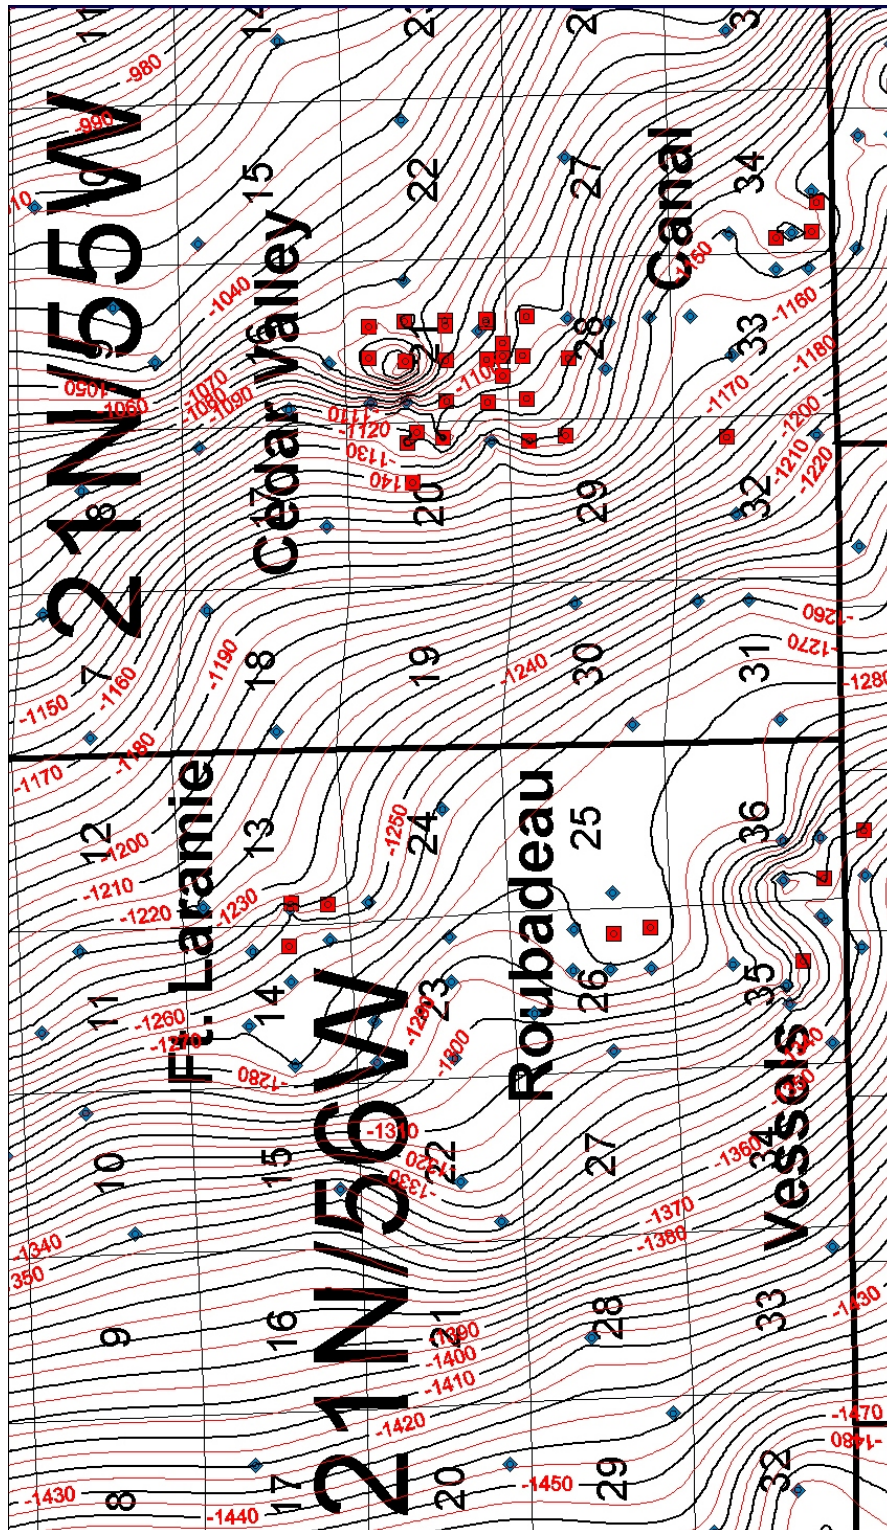 21N/55W
21N/56W
Cedar Valley
Canal
Ft. Laramie
Roubadeau
Vessels
11
14
23
15
22
27
34
9
16
21
28
33
8
17
20
29
32
7
18
19
30
31
12
13
24
25
36
11
14
23
26
35
10
15
22
27
34
9
16
21
28
33
8
17
20
29
32
-980
-990
-1040
-1050
-1060
-1070
-1080
-1090
-1100
-1110
-1120
-1130
-1150
-1160
-1170
-1180
-1200
-1210
-1220
-1150
-1160
-1170
-1180
-1190
-1240
-1260
-1270
-1280
-1200
-1210
-1220
-1230
-1250
-1260
-1270
-1280
-1280
-1300
-1310
-1320
-1330
-1340
-1350
-1360
-1370
-1380
-1340
350
-1390
-1400
-1410
-1420
-1430
-1430
-1440
-1450
-1470
-1480